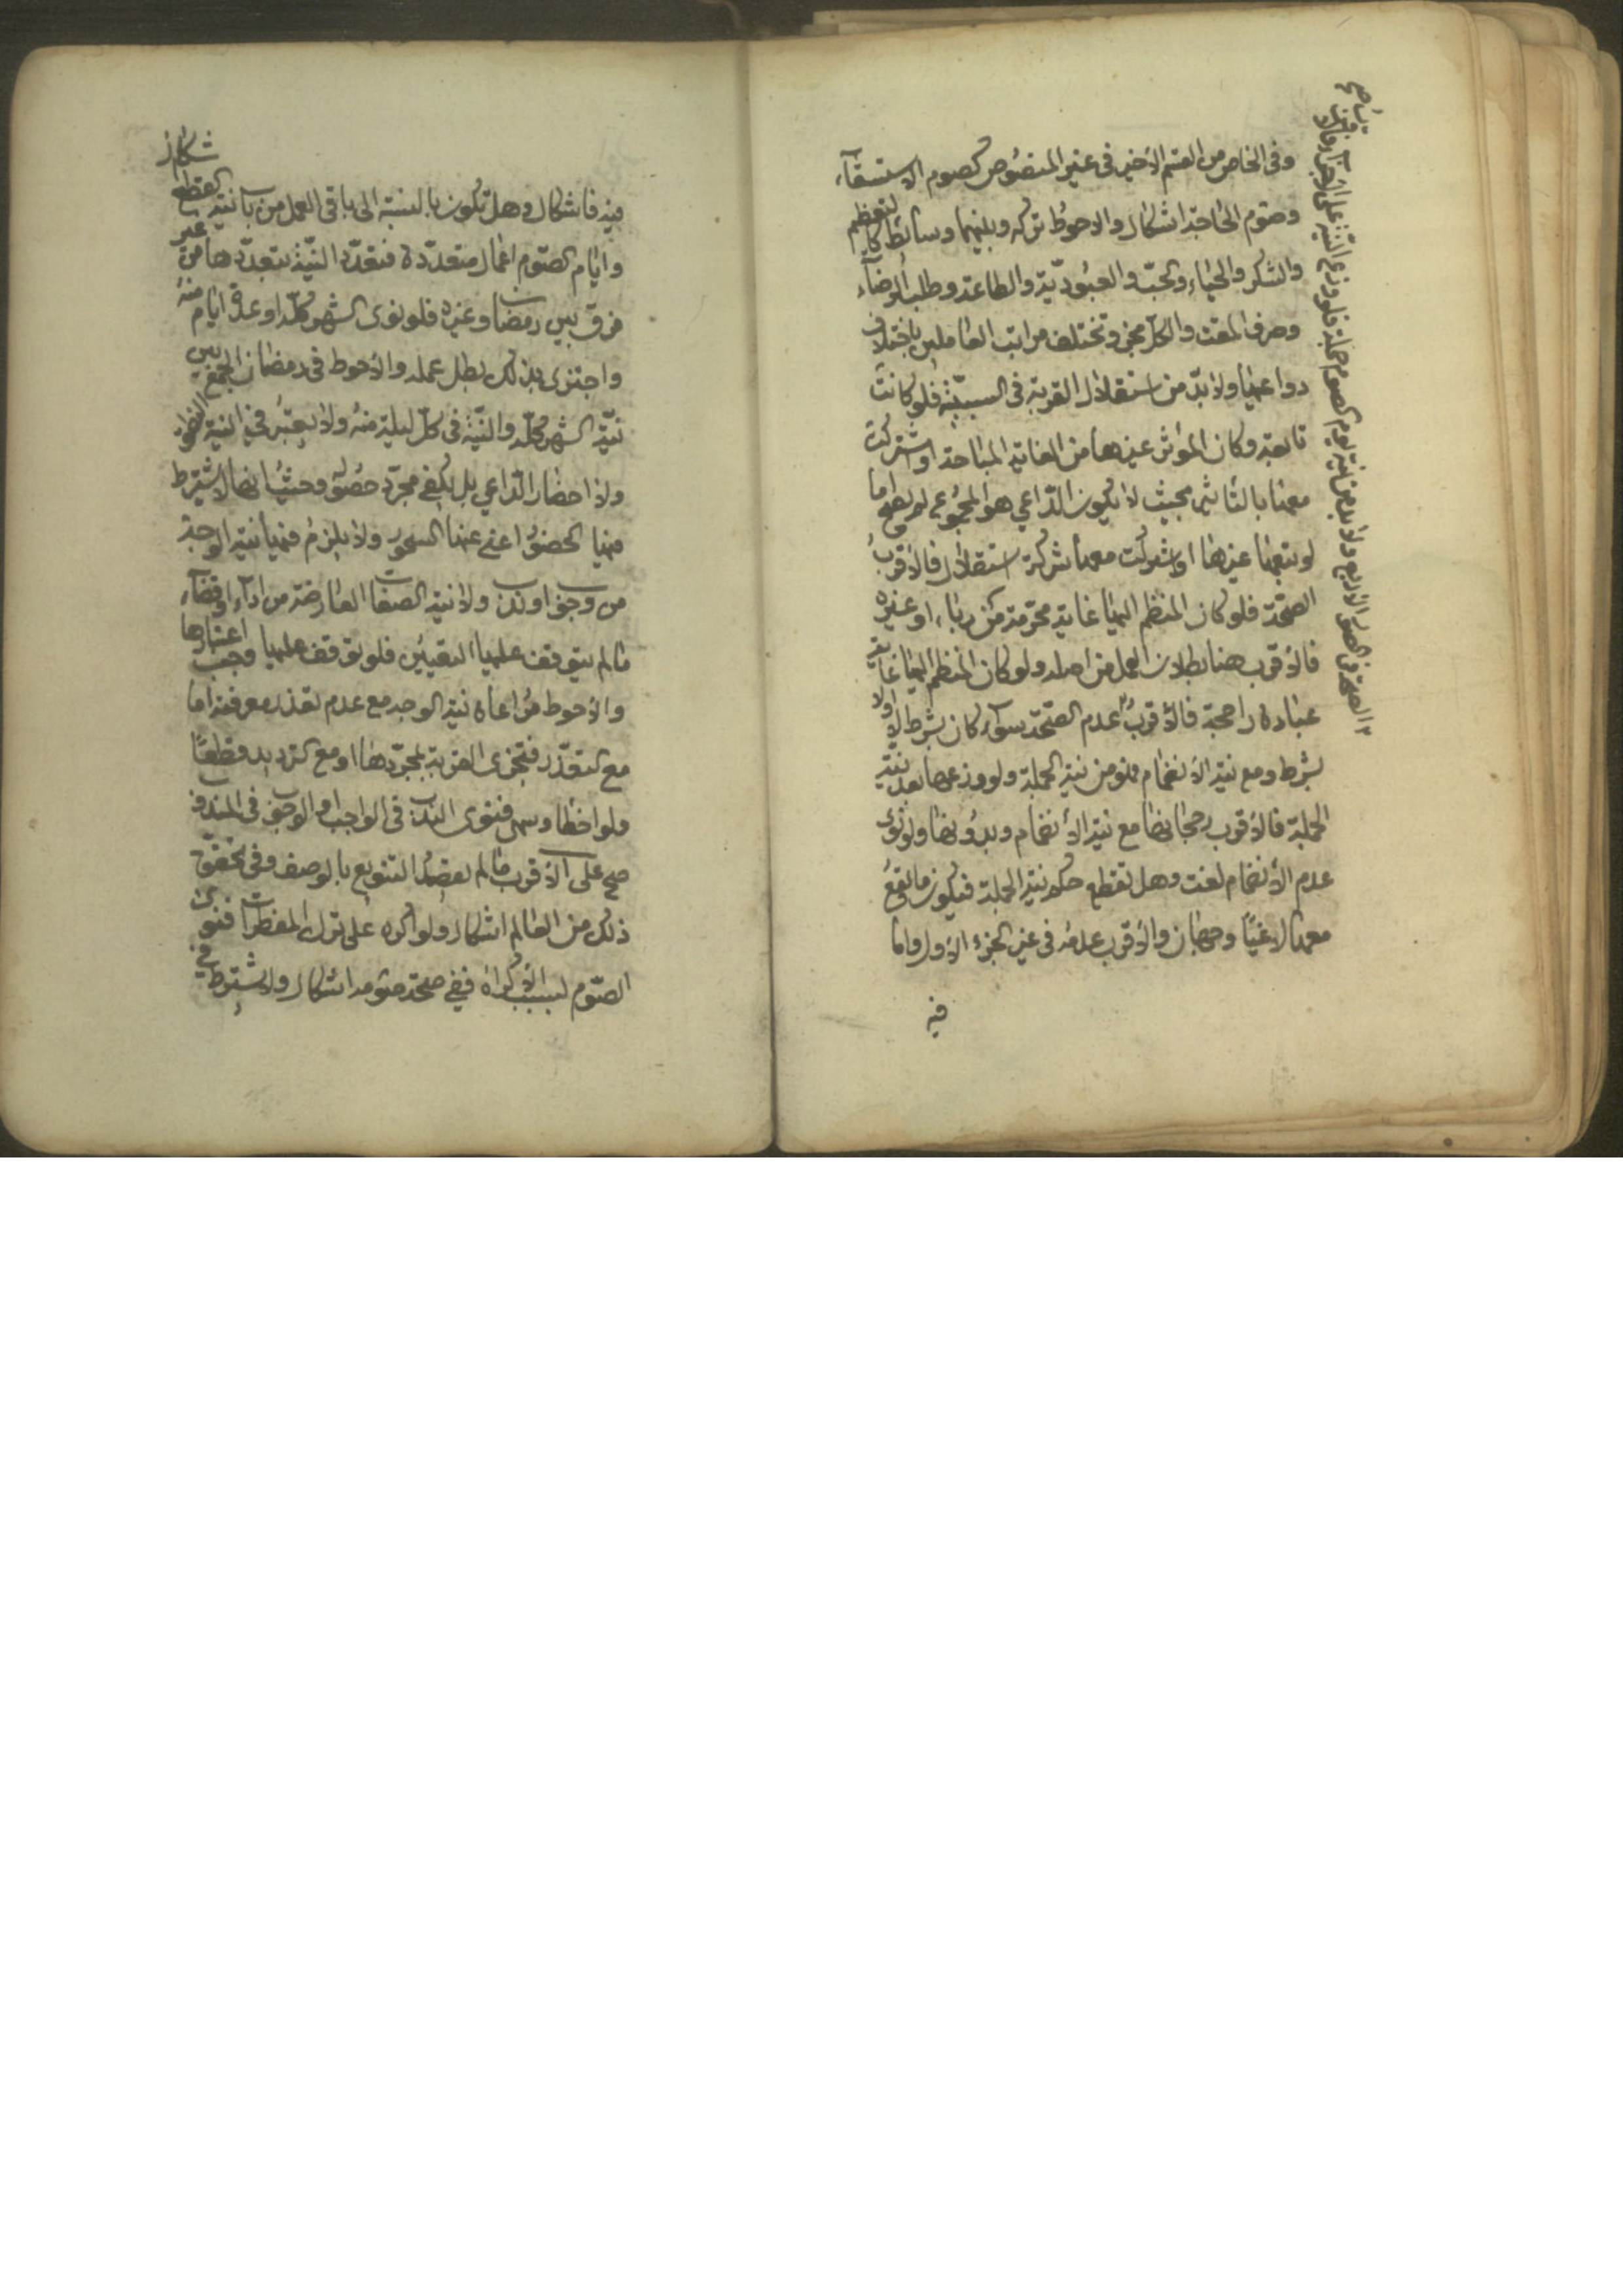 وفي الخاص من القسم الأخير في غير المنصوص كصوم الاستسقآء
وصوم الحاجة اشكال والاحوط تركه وبينهما وسائط كالتعظيم
والشكر والحياء والحبّ والعبوديّة والطاعة وطلب الرضآء
وصرف المقت والكلّ مجز وتختلف مراتب العاملين باختلاف
دواعيها ولا بدّ من استقلال القربة في السببيّة فلو كانت
تابعة وكان المؤثر غيرها من الغاية المباحة او اشتركت
معها بالتأثير بحيث لا يكون الدّاعي هو المجموع لم يصح واما
لو تبعها غيرها او شركت معها شركة استقلال فالاقرب
الصّحّة فلو كان المنظم اليها غاية محرّمة من رياء او غيره
فالأقرب هنا بطلان العمل من اصله ولو كان المنظم اليها غاية
عبادة راجحة فالأقربُ عدم الصّحّة سوآء كان بشرط لا او لا
بشرط ومع نية الأنضمام فهو من نية الجملة ولو وزعها بعد نيّة
الجملة فالأقرب رجحانها مع نيّة الأنضمام وبدونها ولو نوى
عدم الأنضمام لغت وهل تقطع حكم نيّة الجملة فيكون ما يقعُ
معها لاغيًا وجهان والأقرب عدمه في غير الجزء الأول واما
فيه
شكال
فيه فاشكال وهل تكون بالنسبة الى باقي العمل من باب نيّة القطع
وايّام الصّوم اعمال متعدّدة فتعدّد النيّة بتعدّدها من غير
فرق بين رمضان وغيره فلو نوى الشهر كلّه او عدة ايام منه
واجتزى بذلك بطل عمله والأحوط في رمضان الجمع بين
نيّة الشهر كلّه والنيّة في كلّ ليلة منه ولا يعتبر في النية النطق
ولا احضار الدّاعي بل يكفي مجرّد حصوله وحيث انها لا يشترط
فيها الحضور اغنى عنها السحور ولا يلزم فيها نية الوجه
من وجوب او ندب ولا نيّة الصفات العارضة من ادآء او قضآء
ما لم يتوقف عليها التعيين فلو توقف عليها وجب اعتبارها
والأحوط مراعاة نيّة الوجه مع عدم تعذر معرفته اما
مع التعذّر فتجزى القربة بمجرّدها او مع الترديد قطعًا
ولو اخطا وسهى فنوى الندب في الواجب او الوجوب في المندوب
صح على الأقرب ما لم يقصد التنويع بالوصف وفي تحقق
ذلك من العالم اشكال ولو اكره على ترك المفطرات فنوى
الصّوم لسبب الأكراه ففي صحّة صومه اشكال ولا يشترط في